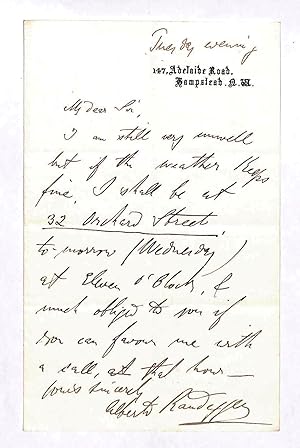 Tuesday evening
147, Adelaide Road.
Hampstead. N.W.
My dear Sir,
I am still very unwell
but if the weather keeps
fine, I shall be at
32 Orchard Street
to-morrow (Wednesday)
at Eleven O'Clock, &
much obliged to you if
you can favour me with
a call, at that hour—
Yours sincerely
Alberto Randegger